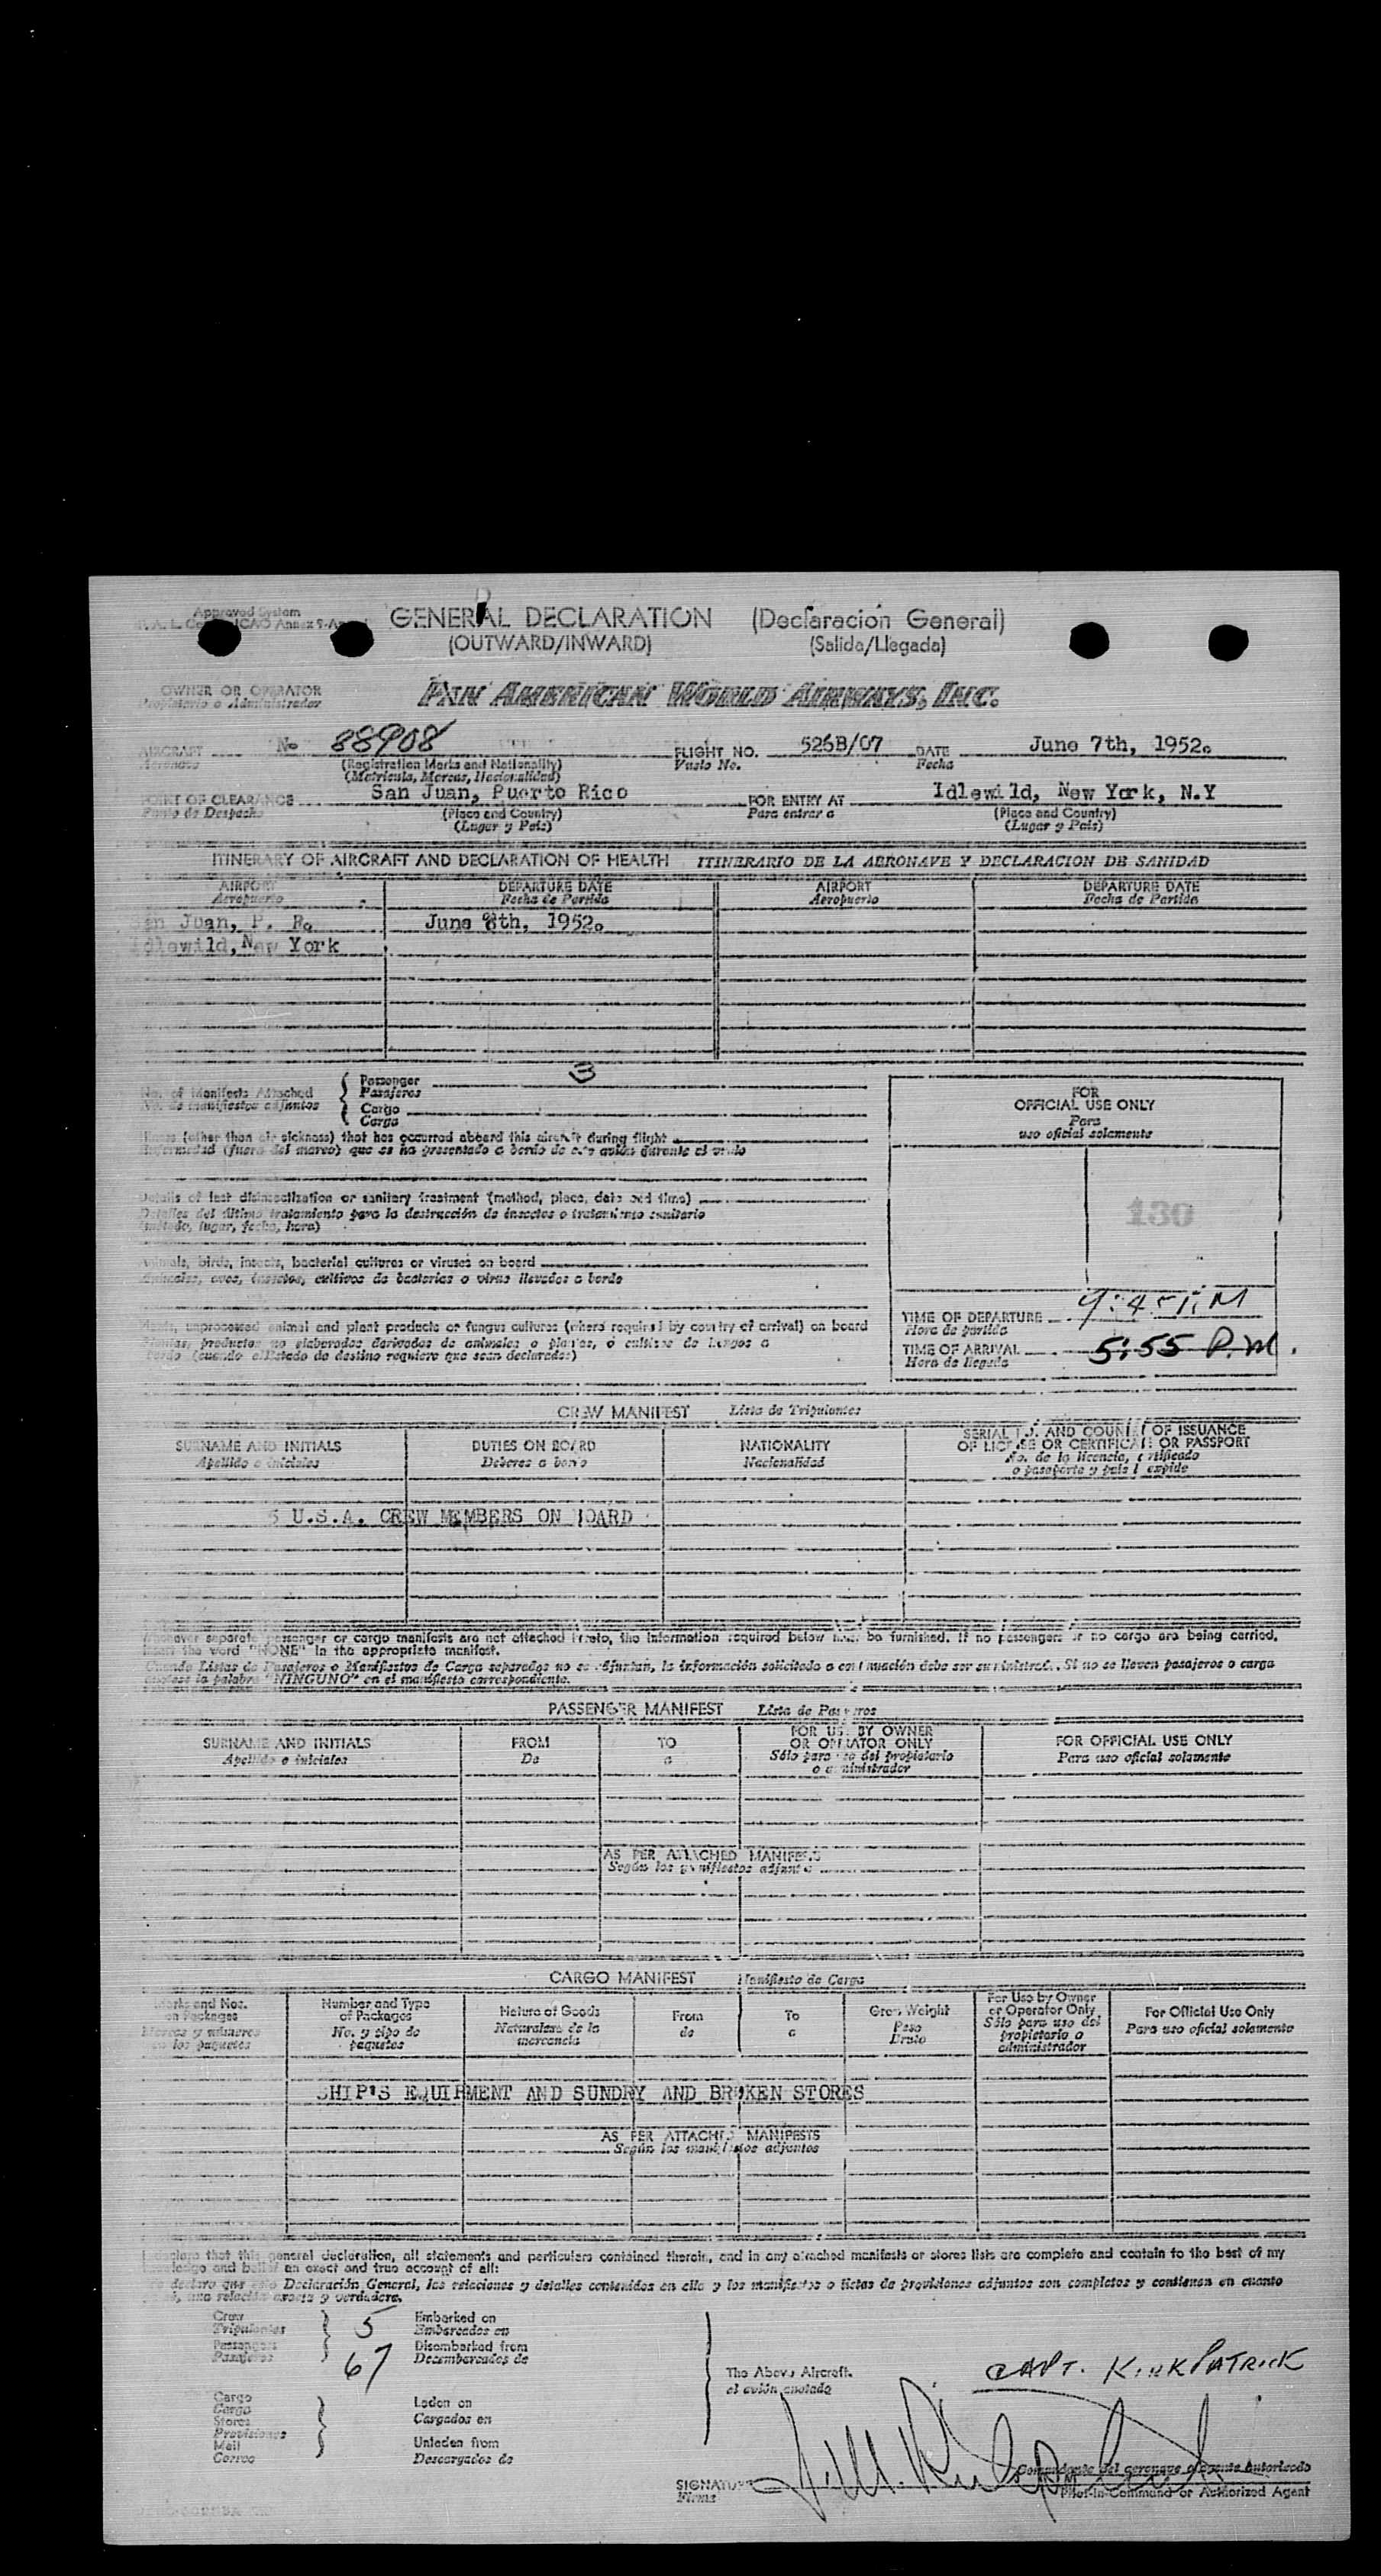 Approved System
GENERAL DECLARATION (Declaración General)
(OUTWARD/INWARD) (Salida/Llegada)
OWNER OR OPERATOR PAN AMERICAN WORLD AIRWAYS, INC.
Propietario o Administrador
AIRCRAFT No 88908 FLIGHT NO. 526B/07 DATE June 7th, 1952.
Aeronave (Registration Marks and Nationality) Vuelo No. Fecha
(Matricula, Marcas, Nacionalidad)
POINT OF CLEARANCE San Juan, Puerto Rico FOR ENTRY AT Idlewild, New York, N.Y
Punto de Despacho (Place and Country) Para entrar a (Place and Country)
(Lugar y País) (Lugar y País)
ITINERARY OF AIRCRAFT AND DECLARATION OF HEALTH ITINERARIO DE LA AERONAVE Y DECLARACION DE SANIDAD
AIRPORT DEPARTURE DATE AIRPORT DEPARTURE DATE
Aeropuerto Fecha de Partida Aeropuerto Fecha de Partida
San Juan, P. R. June 8th, 1952.
Idlewild, New York
No. of Manifests Attached Passenger 3
No. de manifiestos adjuntos Pasajeros
Cargo
Carga
FOR
OFFICIAL USE ONLY
Para
uso oficial solamente
Illness (other than air sickness) that has occurred aboard this aircraft during flight
Enfermedad (fuera del mareo) que se ha presentado a bordo de este avión durante el vuelo
Details of last disinsectization or sanitary treatment (method, place, date and time)
Detalles del último tratamiento para la destrucción de insectos o tratamiento sanitario
(método, lugar, fecha, hora)
130
Animals, birds, insects, bacterial cultures or viruses on board
Animales, aves, insectos, cultivos de bacterias o virus llevados a bordo
Plants, unprocessed animal and plant products or fungus cultures (where required by country of arrival) on board
Plantas, productos no elaborados derivados de animales o plantas, o cultivos de hongos a
bordo (cuando el Estado de destino requiere que sean declarados)
TIME OF DEPARTURE
Hora de partida
TIME OF ARRIVAL 5:55 P.M.
Hora de llegada
CREW MANIFEST Lista de Tripulantes
SURNAME AND INITIALS DUTIES ON BOARD NATIONALITY SERIAL NO. AND COUNTRY OF ISSUANCE
OF LICENSE OR CERTIFICATE OR PASSPORT
Apellido e iniciales Deberes a bordo Nacionalidad No. de la licencia, certificado
o pasaporte y país l expide
5 U.S.A. CREW MEMBERS ON BOARD
Whenever separate passenger or cargo manifests are not attached hereto, the information required below must be furnished. If no passengers or no cargo are being carried,
insert the word "NONE" in the appropriate manifest.
Cuando Listas de Pasajeros o Manifiestos de Carga separados no se adjuntan, la información solicitada a continuación debe ser suministrada. Si no se lleven pasajeros o carga
la palabra "NINGUNO" en el manifiesto correspondiente.
PASSENGER MANIFEST Lista de Pasajeros
SURNAME AND INITIALS FROM TO FOR USE BY OWNER OR OPERATOR ONLY FOR OFFICIAL USE ONLY
Apellido e iniciales De a Sólo para uso del propietario o administrador Para uso oficial solamente
AS PER ATTACHED MANIFESTS
Según los manifiestos adjuntos
CARGO MANIFEST Manifiesto de Carga
Marks and Nos. on Packages Number and Type of Packages Nature of Goods From To Gross Weight For Use by Owner or Operator Only For Official Use Only
Marcas y números en los paquetes No. y tipo de paquetes Naturaleza de la mercancía de a Peso Bruto Sólo para uso del propietario o administrador Para uso oficial solamente
SHIP'S EQUIPMENT AND SUNDRY AND BROKEN STORES
AS PER ATTACHED MANIFESTS
Según los manifiestos adjuntos
I declare that this general declaration, all statements and particulars contained therein, and in any attached manifests or stores lists are complete and contain to the best of my
knowledge and belief an exact and true account of all:
declaro que esta Declaración General, las relaciones y detalles contenidos en ella y los manifiestos o listas de provisiones adjuntos son completos y contienen en cuanto
sé, una relación exacta y verdadera.
Crew 5 Embarked on
Tripulantes Embarcados en
Passengers 67 Disembarked from
Pasajeros Desembarcados de
The Above Aircraft. CAPT. KIRKPATRICK
el avión anotado
Cargo Laden on
Carga
Stores Cargados en
Provisiones
Mail Unladen from
Correo Descargados de
SIGNATURE Comandante del aeronave o agente Autorizado
Firma Pilot-in-Command or Authorized Agent